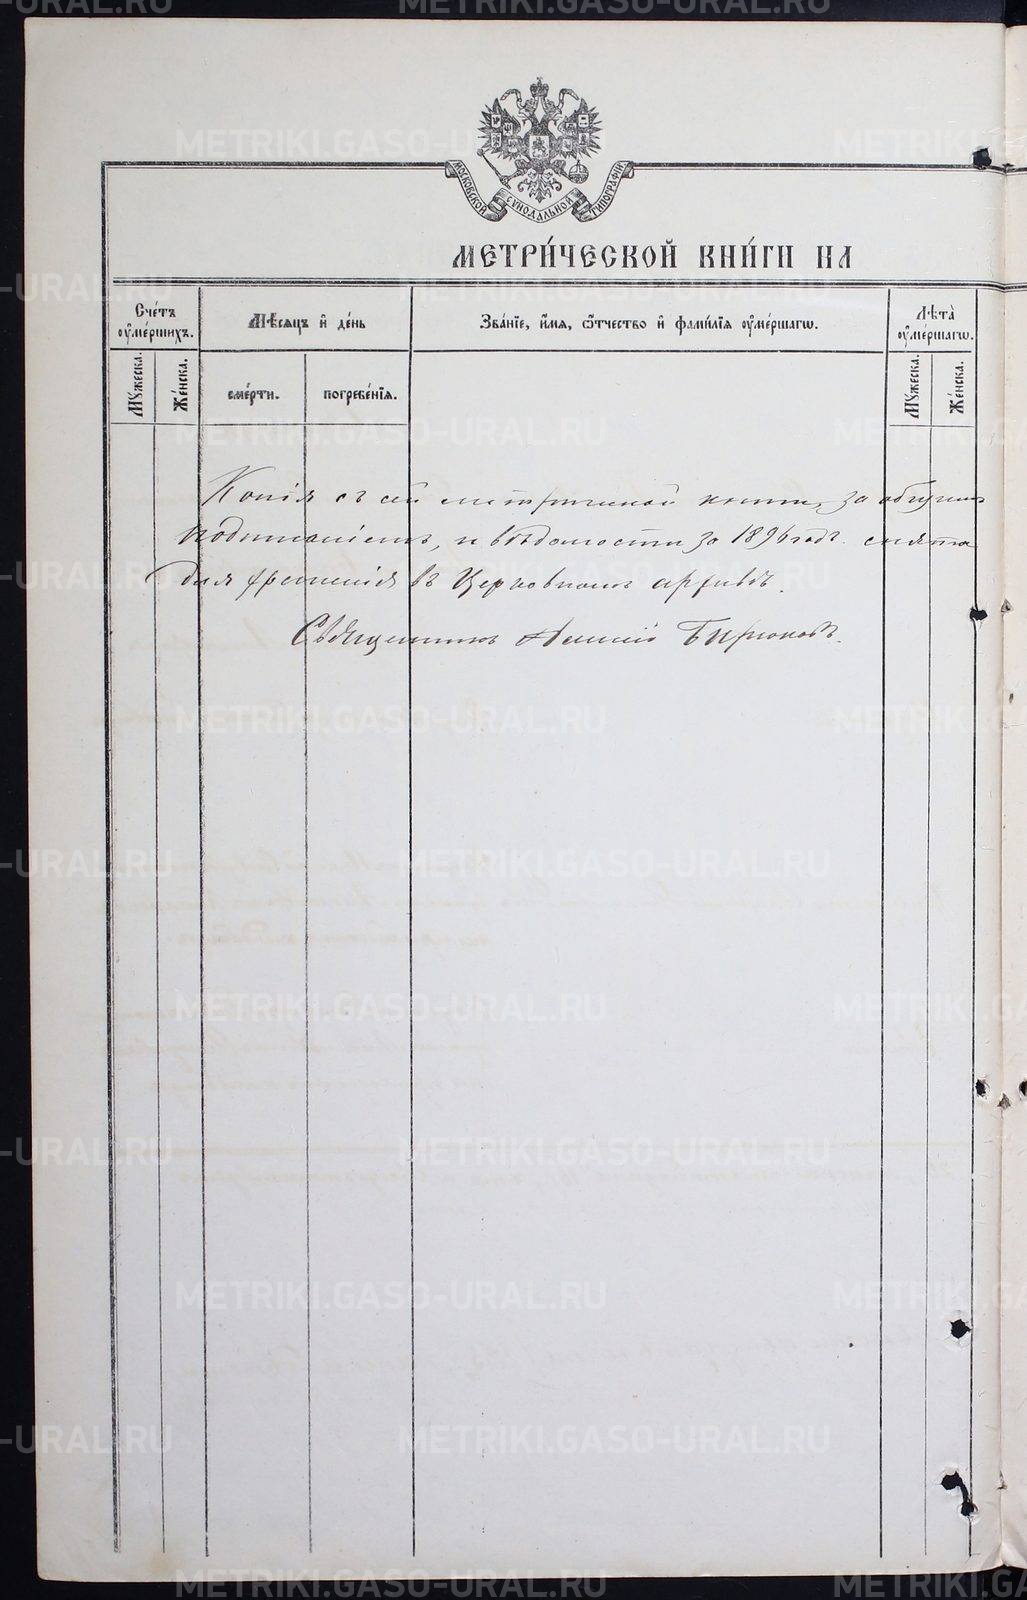 МОСКОВСКОЙ СѴНОДАЛЬНОЙ ТИПОГРАФІИ
МЕТРИ́ЧЕСКОЙ КНИ́ГИ НА
Сче́тъ ᲂу҆ме́ршихъ.
Мѣ́сяцъ и҆ де́нь
Зва́нїе, и҆́мя, ѻ҆́тчество и҆ фами́лїя ᲂу҆ме́ршагѡ.
Лѣ́та ᲂу҆ме́ршагѡ.
Мꙋ́жеска.
Же́нска.
сме́рти.
погребе́нїя.
Мꙋ́жеска.
Же́нска.
Копія съ сей метрической книги, за общимъ
подписаніемъ, и вѣдомости за 1896 годъ. снята
для храненія въ Церковномъ архивѣ.
Священникъ Алексій Бирюковъ.
METRIKI.GASO-URAL.RU